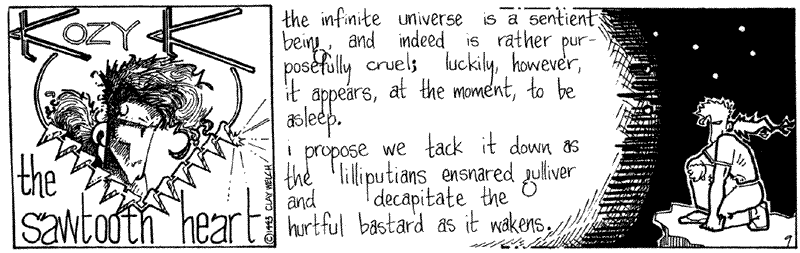 Kozy K
the
sawtooth heart
© 1993 CLAY WELCH
the infinite universe is a sentient
being, and indeed is rather pur-
posefully cruel; luckily, however,
it appears, at the moment, to be
asleep.
i propose we tack it down as
the lilliputians ensnared gulliver
and decapitate the
hurtful bastard as it wakens.
9